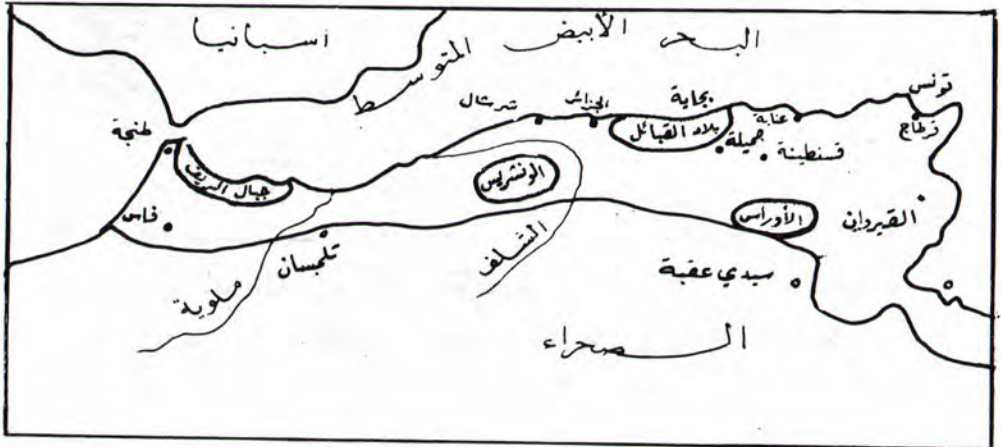 اسبانيا
البحر الأبيض
المتوسط
تونس
قرطاج
عنابة
بجاية
الجزائر
شرشال
بلاد القبائل
جميلة
قسنطينة
طنجة
جبال الريف
الونشريس
الأوراس
القيروان
فاس
تلمسان
الشلف
ملوية
سيدي عقبة
الصحراء